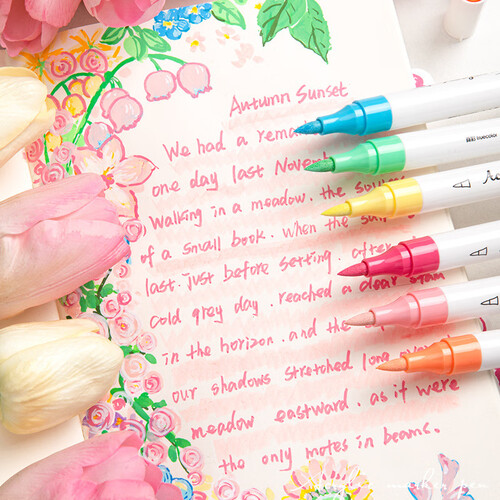 Autumn Sunset
We had a
one day last
Walking in a meadow. the
of a small book. when the
last. just before setting. after
cold grey day. reached a clear
in the horizon. and the
our shadows stretched long
meadow eastward. as it were
the only motes in beams.
truecolor
marker pen